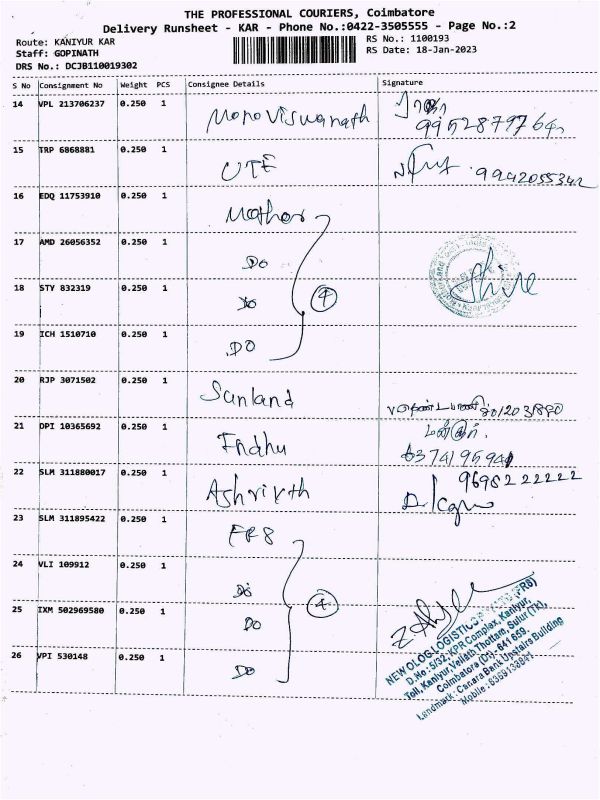 THE PROFESSIONAL COURIERS, Coimbatore
Delivery Runsheet - KAR - Phone No.:0422-3505555 - Page No.:2
Route: KANIYUR KAR
RS No.: 1100193
Staff: GOPINATH
RS Date: 18-Jan-2023
DRS No.: DCJB110019302
S No Consignment No Weight PCS Consignee Details Signature
14 VPL 213706237 0.250 1 Monoviswanath
15 TRP 6868881 0.250 1 UTE 9942055342
16 EDQ 11753910 0.250 1 Mother
17 AMD 26056352 0.250 1 Do
18 STY 832319 0.250 1 Do 4
19 ICH 1510710 0.250 1 DO
20 RJP 3071502 0.250 1 Sunland
21 DPI 10365692 0.250 1 Indhu
22 SLM 311880017 0.250 1 Ashrivth 9698222222
23 SLM 311895422 0.250 1 FR8
24 VLI 109912 0.250 1 Do
25 IXM 502969580 0.250 1 Do 4
26 VPI 530148 0.250 1 Do
NEWOLOG LOGISTICS (FR8)
D.No:5/32, KPR Complex, Kaniyur,
Toll, Kaniyur, Vellath Thottam, Sulur (Tk),
Coimbatore (Dt) - 641 659.
Landmark: Canara Bank Upstairs Building